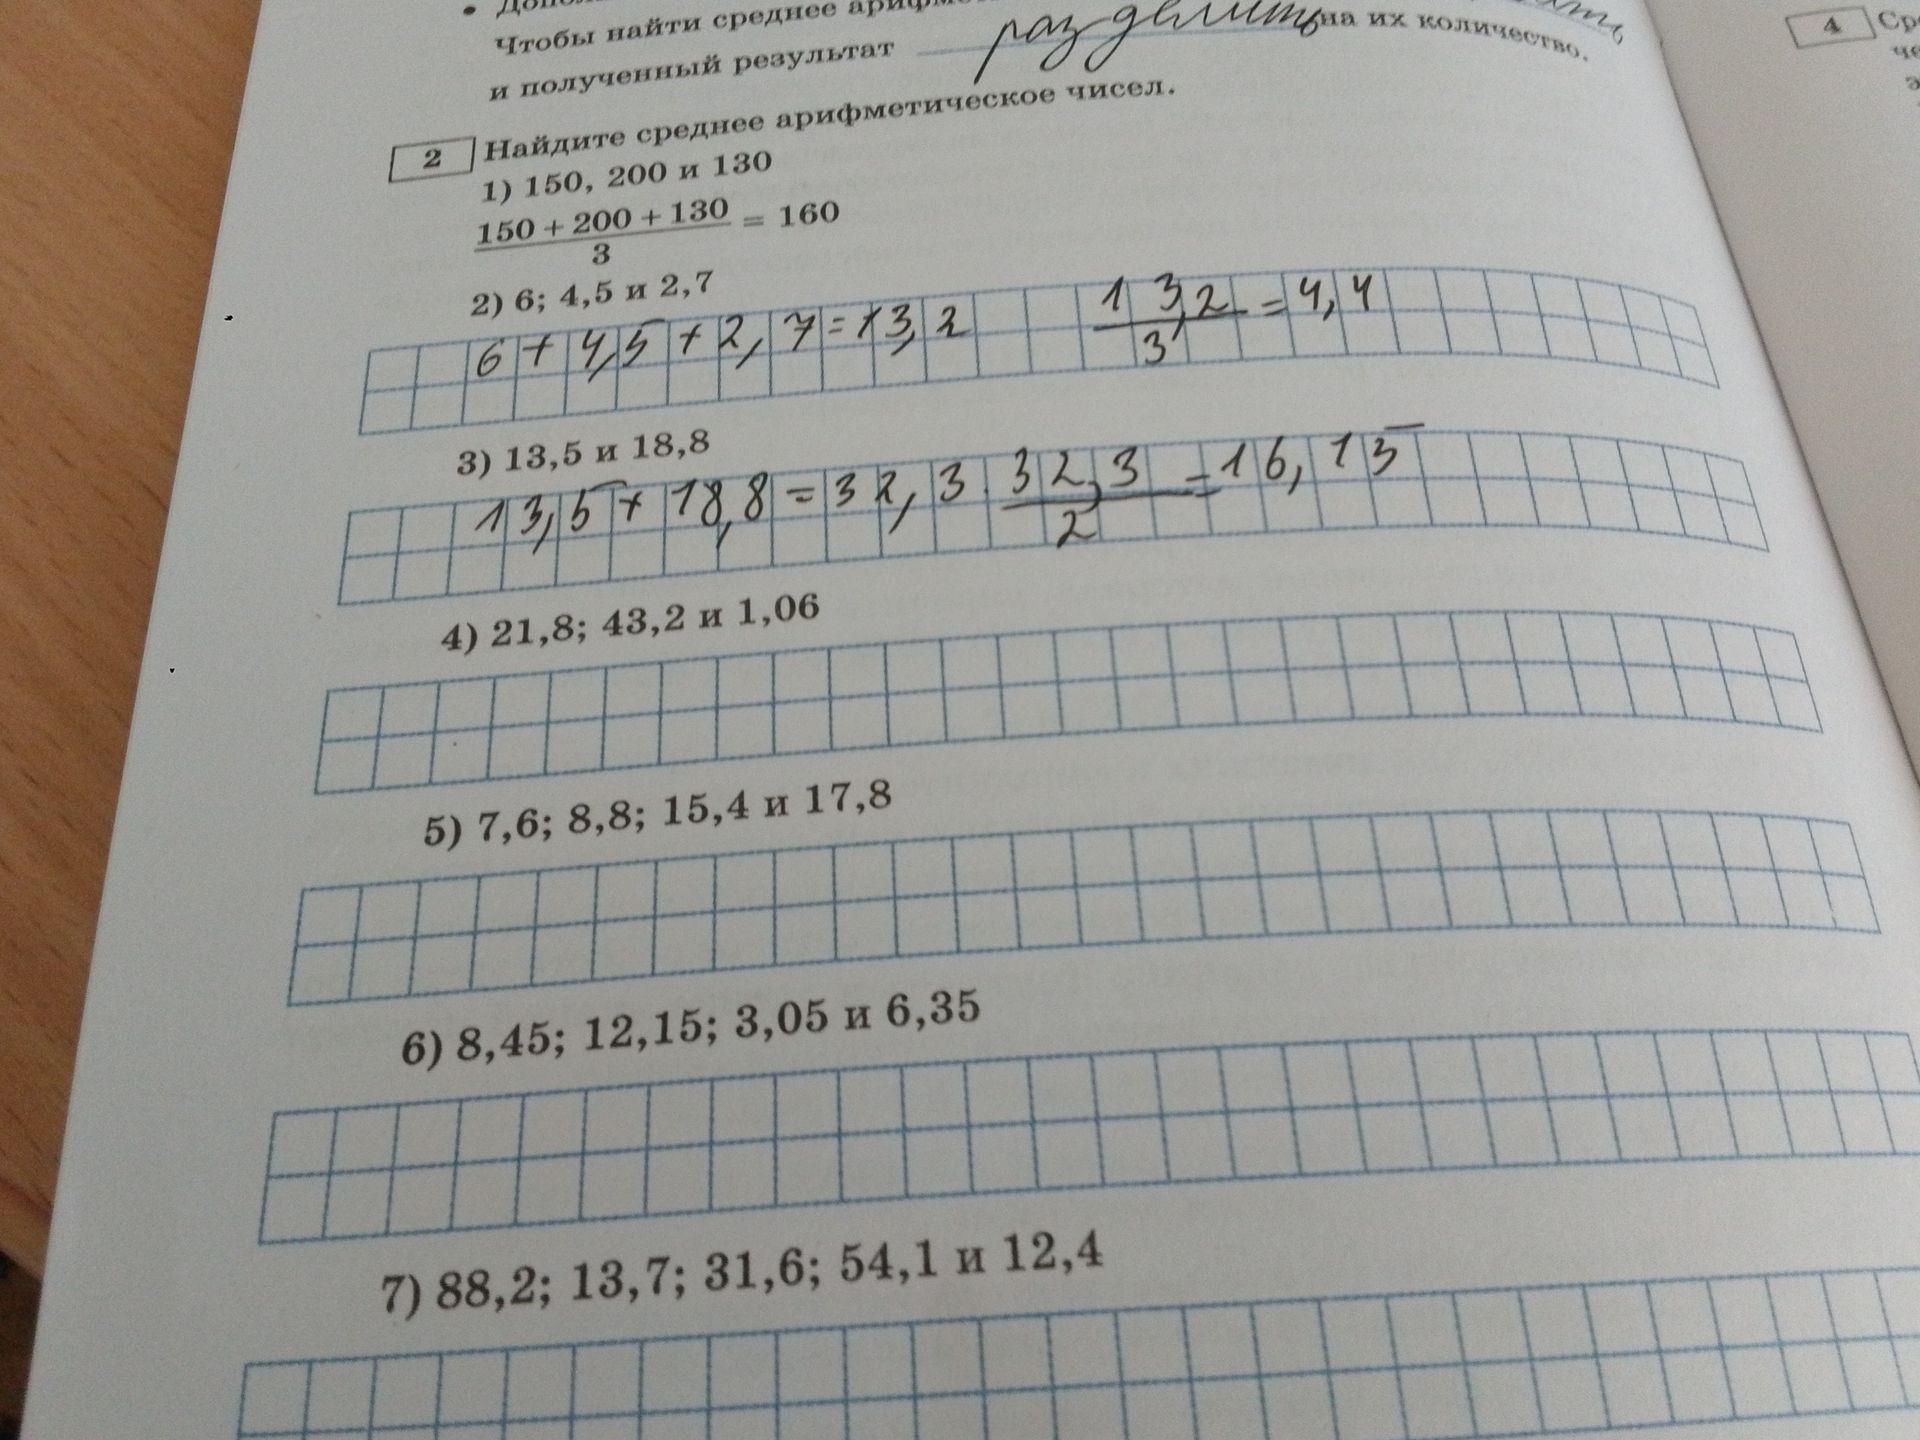 Чтобы найти среднее
и полученный результат разделить на их количество.
2 Найдите среднее арифметическое чисел.
1) 150, 200 и 130
150 + 200 + 130 / 3 = 160
2) 6; 4,5 и 2,7
6 + 4,5 + 2,7 = 13,2 13,2 / 3 = 4,4
3) 13,5 и 18,8
13,5 + 18,8 = 32,3 32,3 / 2 = 16,15
4) 21,8; 43,2 и 1,06
5) 7,6; 8,8; 15,4 и 17,8
6) 8,45; 12,15; 3,05 и 6,35
7) 88,2; 13,7; 31,6; 54,1 и 12,4
4